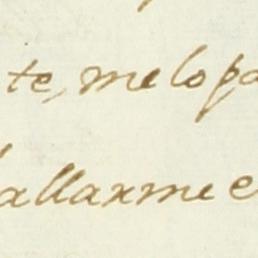 te, melopa
allaxme e